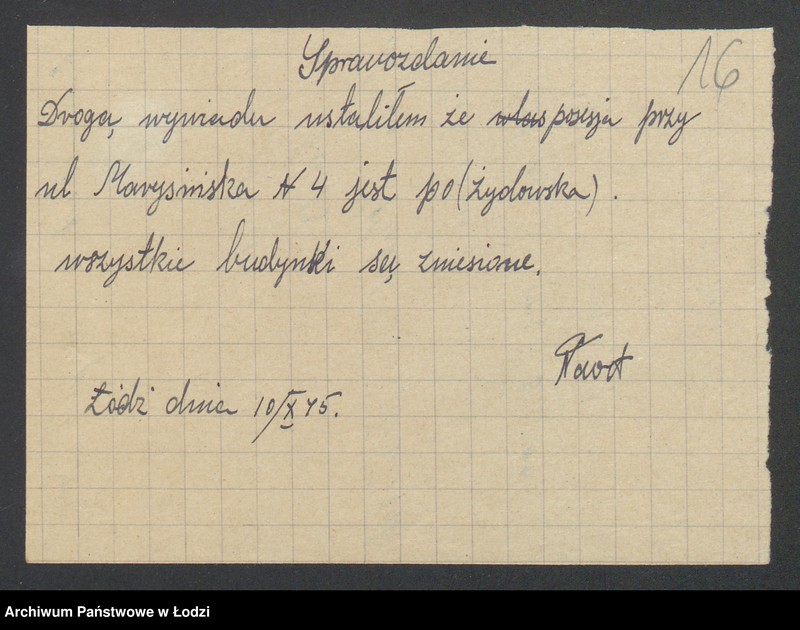 Sprawozdanie
16
Drogą wywiadu ustaliłem że własposesja przy
ul Marysińska N 4 jest po(żydowska).
wszystkie budynki są zniesione.
Łódź dnia 10/X 45.
Archiwum Państwowe w Łodzi